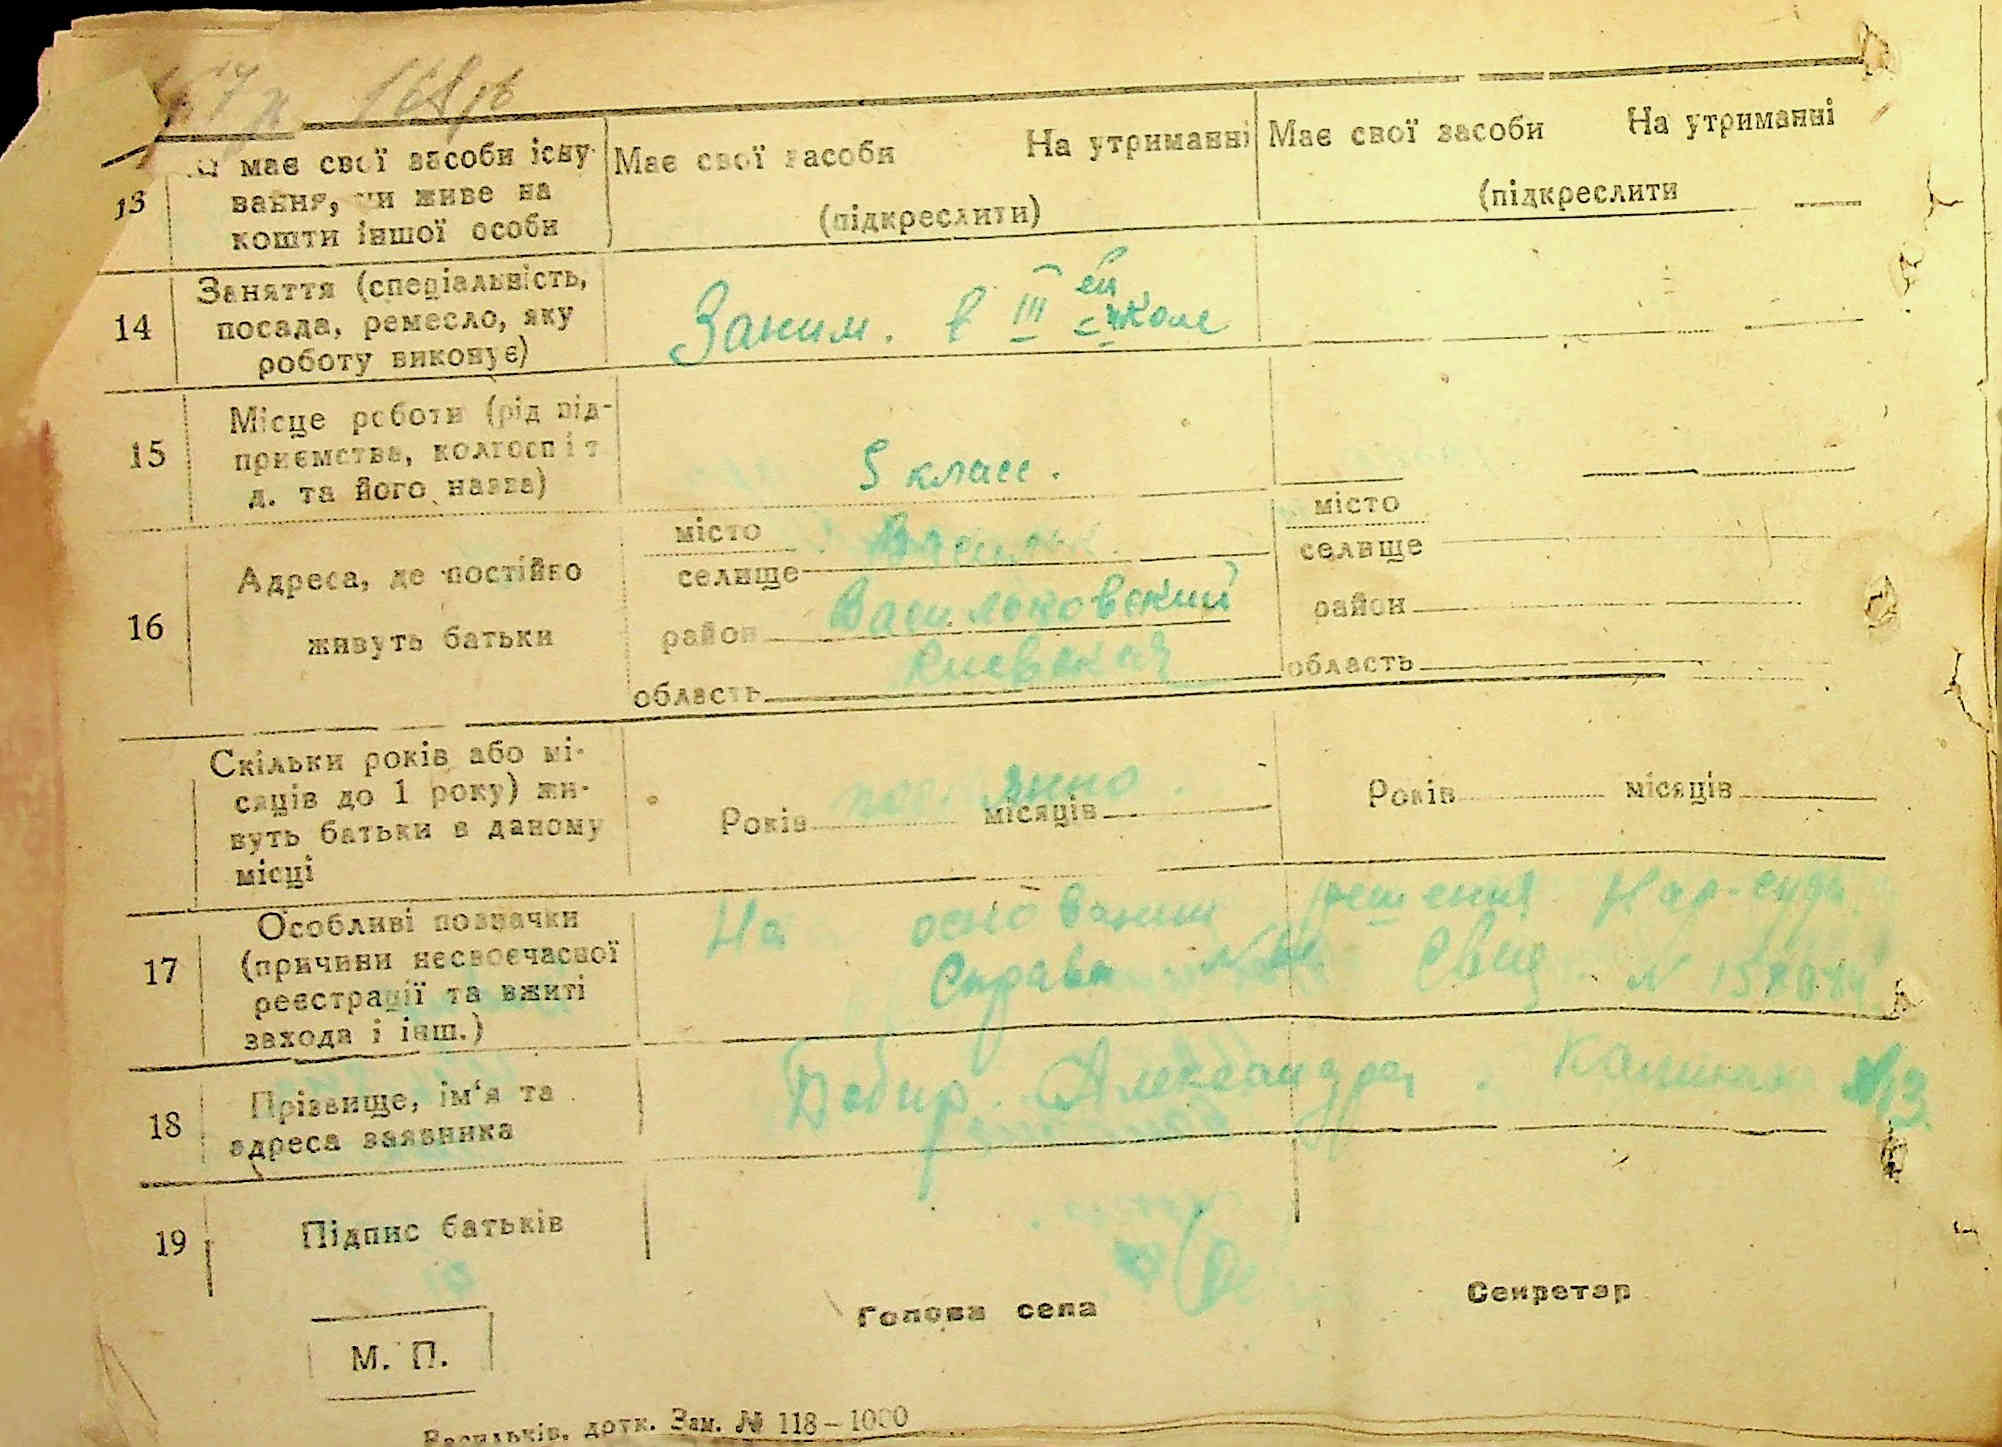 13 має свої засоби існу-
вання, чи живе на
кошти іншої особи
Має свої засоби На утриманні
(підкреслити)
Має свої засоби На утриманні
(підкреслити
14 Заняття (спеціальність,
посада, ремесло, яку
роботу виконує)
Заним. в III ей школе
15 Місце роботи (рід під-
приємства, колгосп і т
д. та його назва)
5 класс.
16 Адреса, де постійно
живуть батьки
місто Васильк.
селище
район Васильковский
область Киевская
місто
селище
район
область
Скільки років або мі-
сяців до 1 року) жи-
вуть батьки в даному
місці
Років пост. місяців
Років місяців
17 Особливі позначки
(причини несвоєчасної
реєстрації та вжиті
заходи і інш.)
На основании решения Нар-суда
Справа Свид. N
18 Прізвище, ім'я та
адреса заявника
Александра. 13
19 Підпис батьків
Голова села Секретар
М. П.
Васильків, друк. Зам. № 118–1000